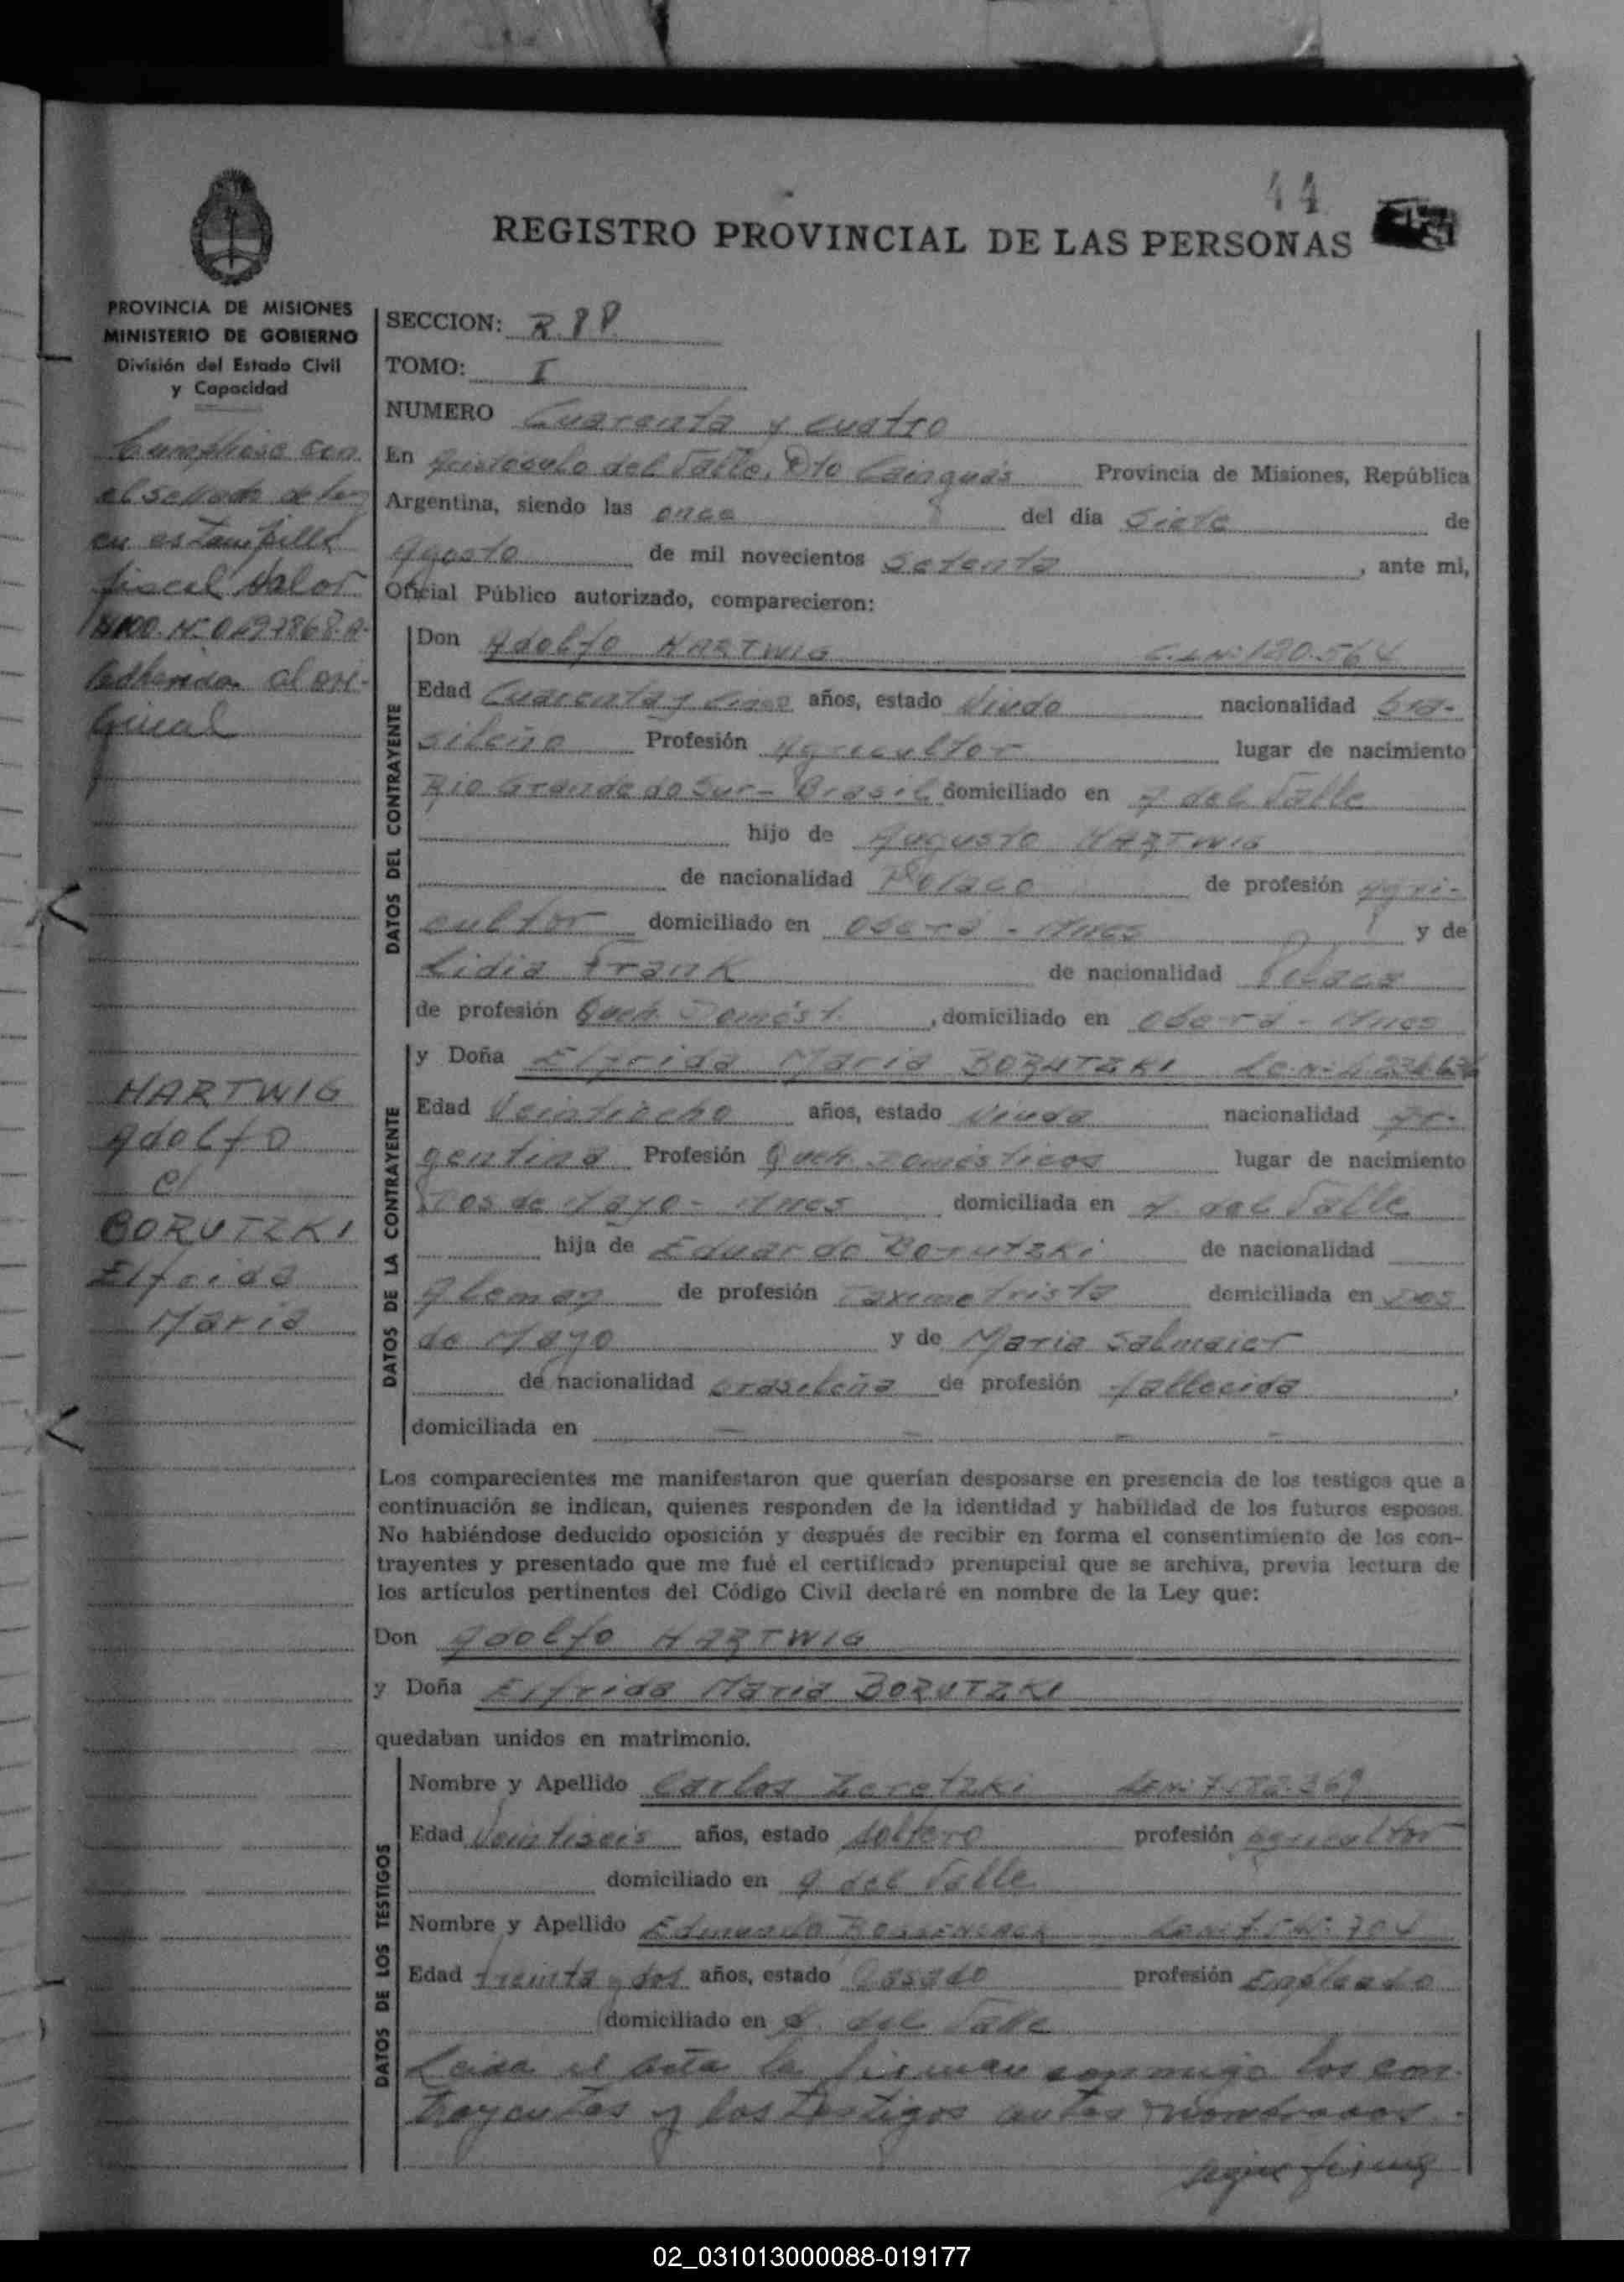 44
REGISTRO PROVINCIAL DE LAS PERSONAS
PROVINCIA DE MISIONES
MINISTERIO DE GOBIERNO
División del Estado Civil
y Capacidad
Cumplióse con
el sellado de ley
en estampilla
fiscal valor
adherida al ori-
ginal
HARTWIG
Adolfo
c/
BORUTZKI
Elfrida
Maria
SECCION:
TOMO: I
NUMERO Cuarenta y cuatro
En Aristóbulo del Valle, Dto Cainguás Provincia de Misiones, República
Argentina, siendo las once del día Siete de
Agosto de mil novecientos Setenta, ante mi,
Oficial Público autorizado, comparecieron:
DATOS DEL CONTRAYENTE
Don Adolfo HARTWIG C.I.Nº 120.564
Edad Cuarenta y cinco años, estado Viudo nacionalidad bra-
sileño Profesión Agricultor lugar de nacimiento
Rio Grande do Sur- Brasil domiciliado en A del Valle
hijo de Augusto HARTWIG
de nacionalidad Polaco de profesión agri-
cultor domiciliado en Oberá - Mnes y de
Lidia Frank de nacionalidad Polaca
de profesión Queh. Domést. , domiciliado en Oberá - Mnes
DATOS DE LA CONTRAYENTE
y Doña Elfrida Maria BORUTZKI
Edad Veintiocho años, estado Viuda nacionalidad Ar-
gentina Profesión Queh. Domésticos lugar de nacimiento
Dos de Mayo - Mnes domiciliada en A. del Valle
hija de Eduardo Borutzki de nacionalidad
Aleman de profesión Taximetrista domiciliada en Dos
de Mayo y de Maria Salmaier
de nacionalidad brasileña de profesión fallecida,
domiciliada en - - - -
Los comparecientes me manifestaron que querían desposarse en presencia de los testigos que a
continuación se indican, quienes responden de la identidad y habilidad de los futuros esposos.
No habiéndose deducido oposición y después de recibir en forma el consentimiento de los con-
trayentes y presentado que me fué el certificado prenupcial que se archiva, previa lectura de
los artículos pertinentes del Código Civil declaré en nombre de la Ley que:
Don Adolfo HARTWIG
y Doña Elfrida Maria BORUTZKI
quedaban unidos en matrimonio.
DATOS DE LOS TESTIGOS
Nombre y Apellido Carlos Zeretzki
Edad Veintiseis años, estado soltero profesión agricultor
domiciliado en A del Valle
Nombre y Apellido Edmundo
Edad treinta y dos años, estado Casado profesión Empleado
domiciliado en A. del Valle
Leida el acta la firman conmigo los con-
trayentes y los testigos antes nombrados.
sigue firma
02_031013000088-019177